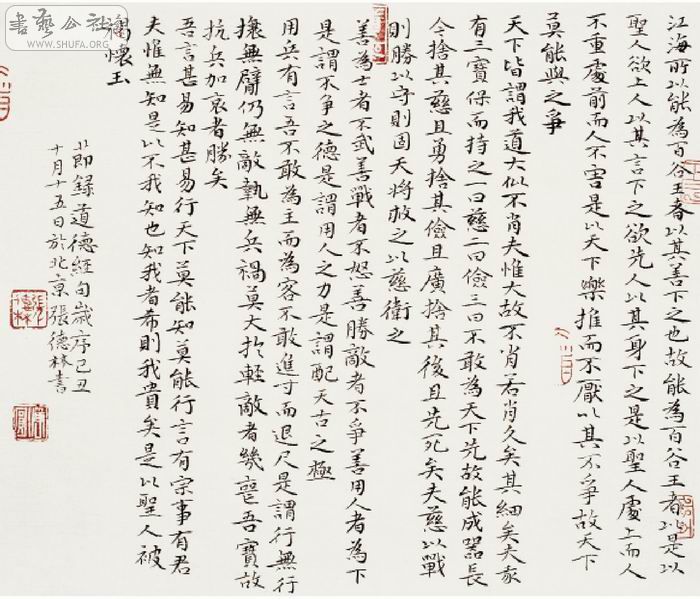 書藝公社
WWW.SHUFA.ORG
江海所以能為百谷王者以其善下之也故能為百谷王者以是以
聖人欲上人以其言下之欲先人以其身下之是以聖人處上而人
不重處前而人不害是以天下樂推而不厭以其不爭故天下
莫能與之爭
天下皆謂我道大似不肖夫惟大故不肖若肖久矣其細矣夫我
有三寶保而持之一曰慈二曰儉三曰不敢為天下先故能成器長
今捨其慈且勇捨其儉且廣捨其後且先死矣夫慈以戰
則勝以守則固天將救之以慈衛之
善為士者不武善戰者不怒善勝敵者不爭善用人者為下
是謂不爭之德是謂用人之力是謂配天古之極
用兵有言吾不敢為主而為客不敢進寸而退尺是謂行無行
攘無臂仍無敵執無兵禍莫大於輕敵者幾喪吾寶故
抗兵加哀者勝矣
吾言甚易知甚易行天下莫能知莫能行言有宗事有君
夫惟無知是以不我知也知我者希則我貴矣是以聖人被
褐懷玉
節錄道德經句歲序己丑
十月十五日於北京張德林書